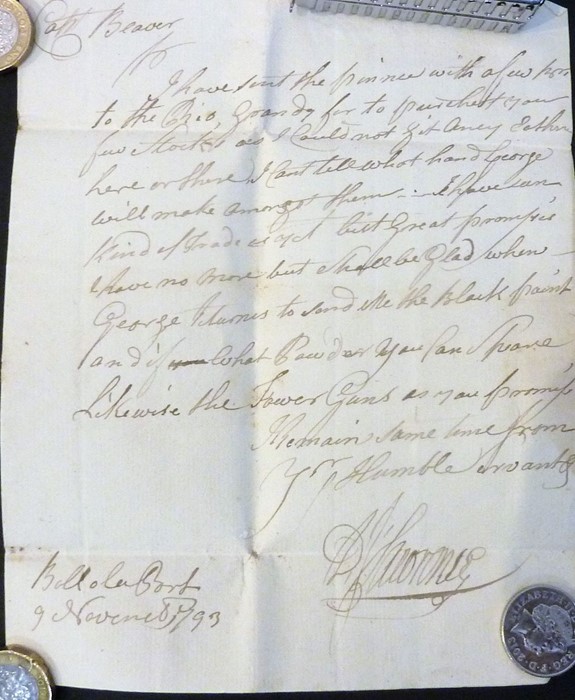 Capt Beaver
Sr
I have sent the pinnce with a few
to the Rio, Grandy for to purchest you
few Stocks as I Could not git aney Eather
here or there I Cant tell what hand George
will make amongst them - I have sun
kind of trade as yet but Great promises
I have no more but Shall be Glad when
George Returns to send Me the Black paint
and if you What Powder You Can Spare
Likewise the Fower Guns as you promis
Remain same time from
Yr Humble Servant
9 November 1793
ELIZABETH II
REG F D 2013